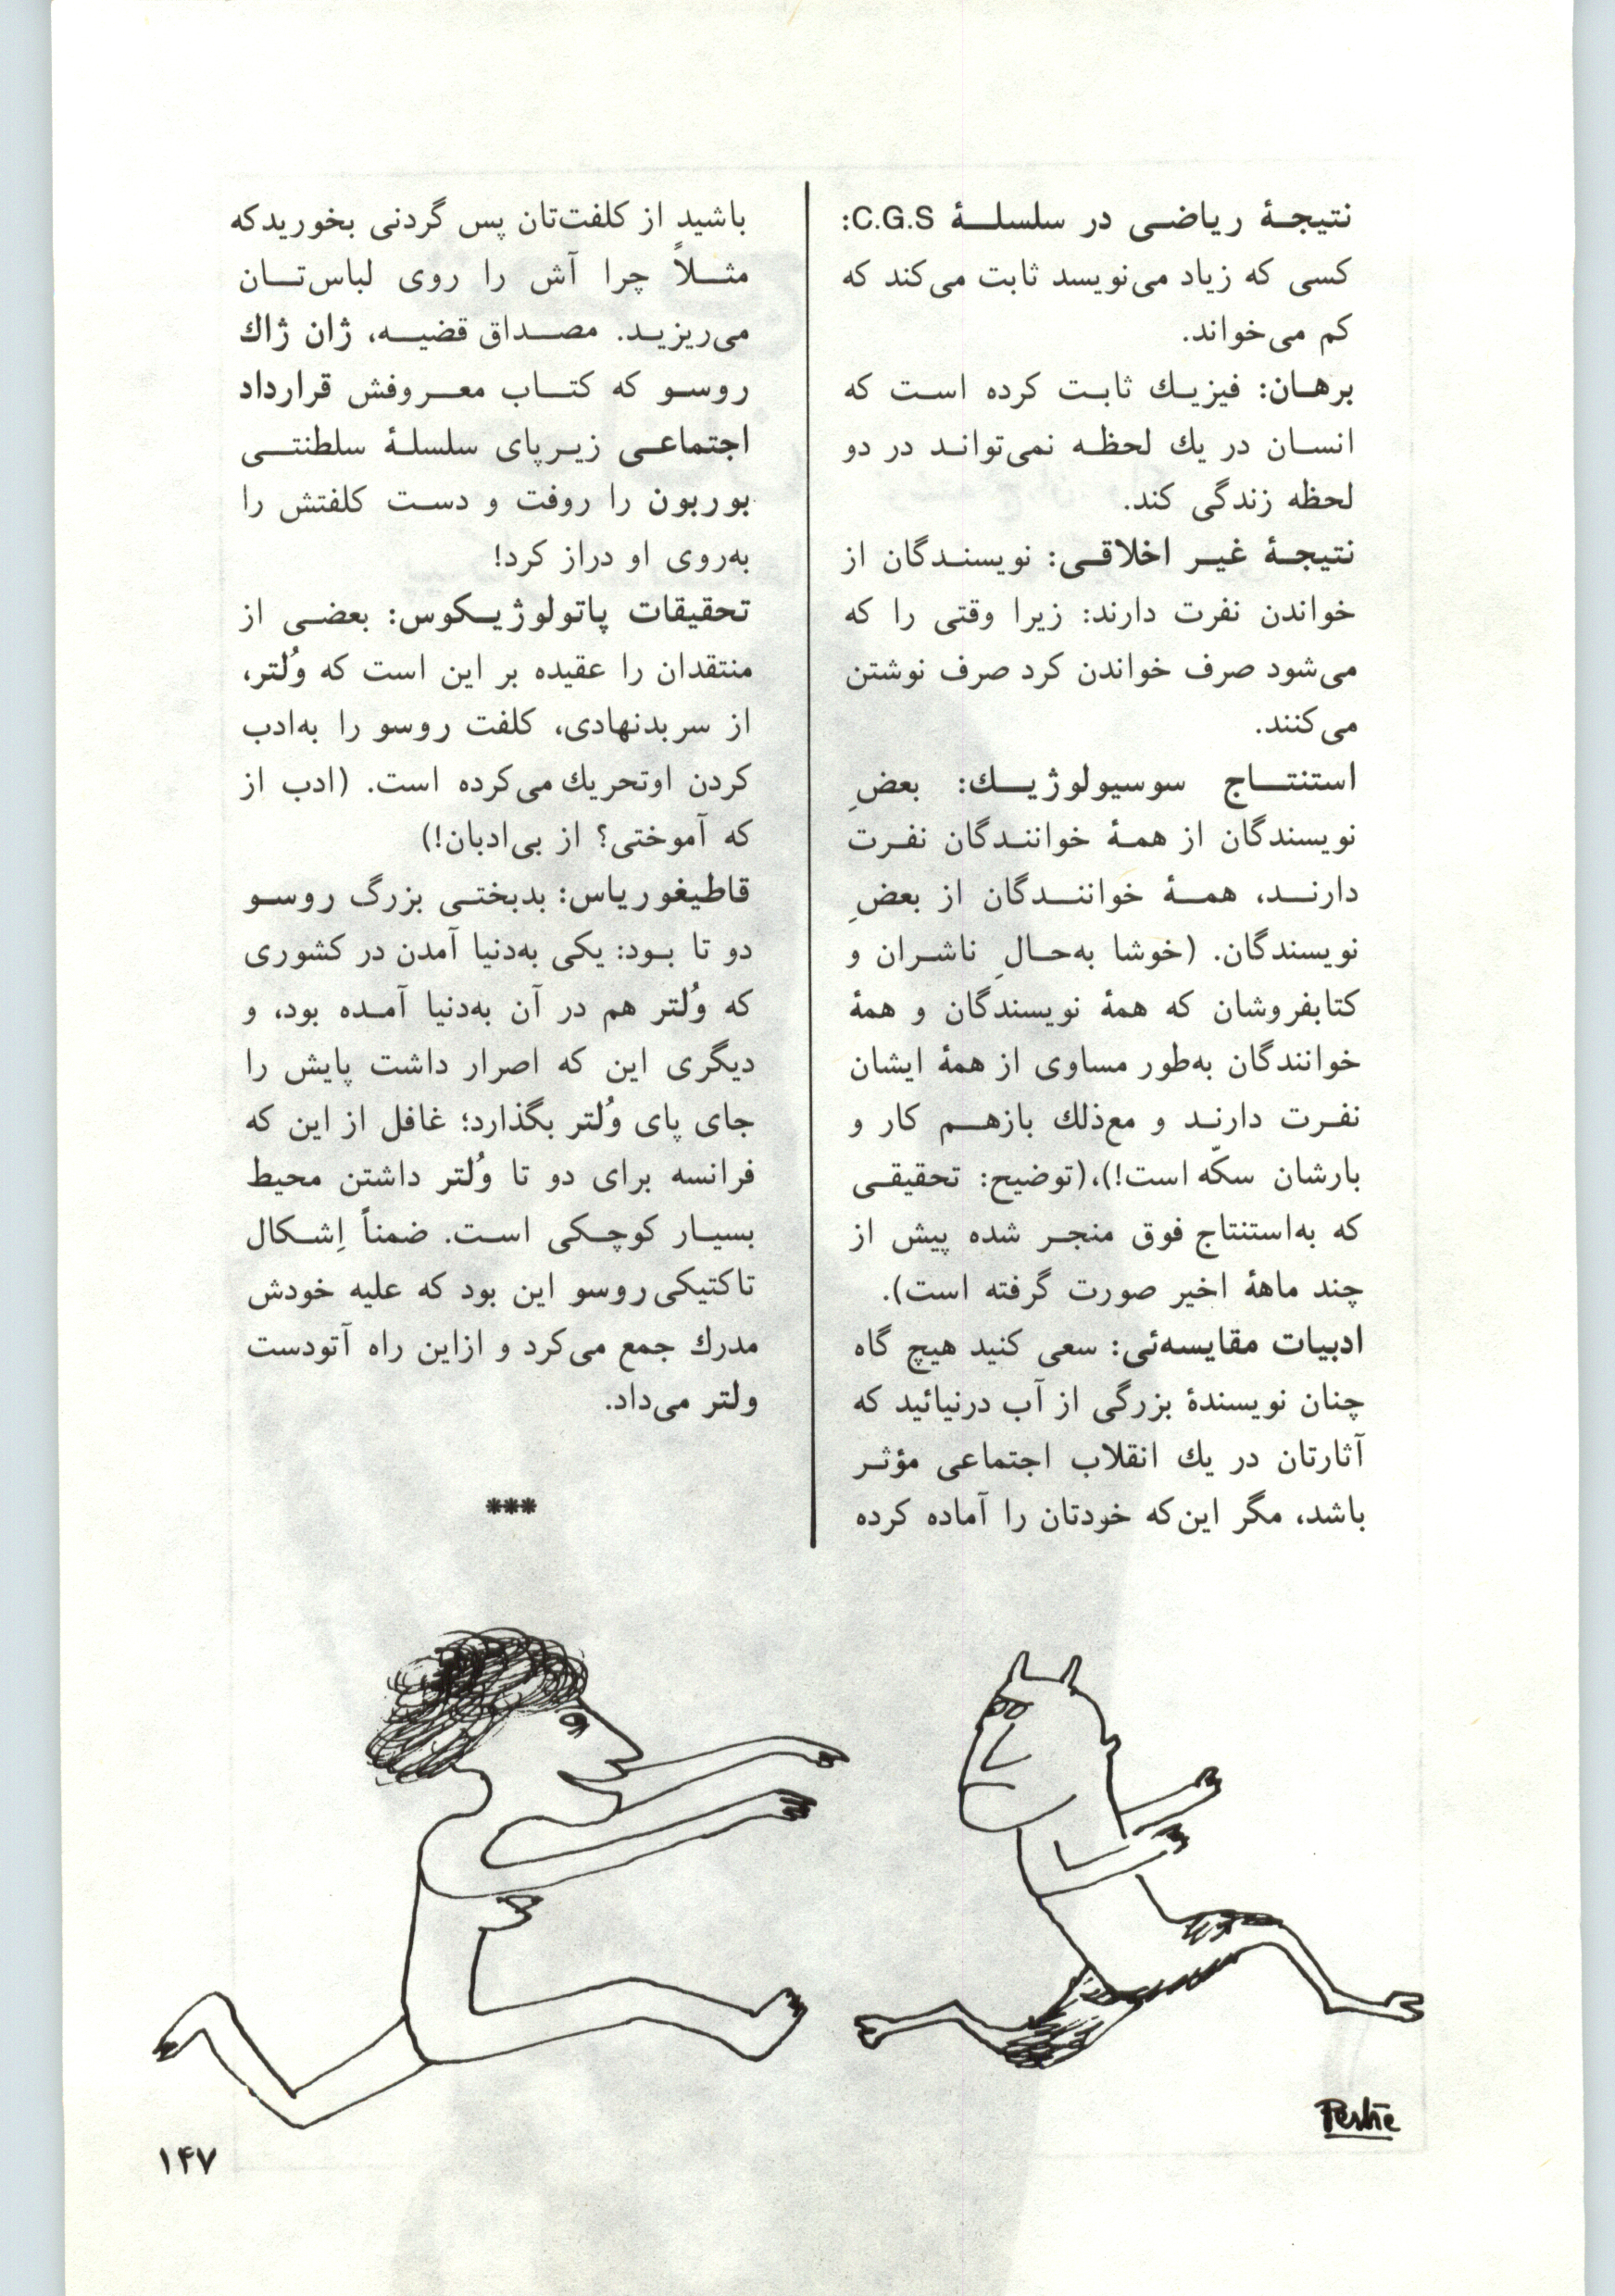 نتیجهٔ ریاضی در سلسلهٔ C.G.S:
کسی که زیاد می‌نویسد ثابت می‌کند که
کم می‌خواند.
برهان: فیزیك ثابت کرده است که
انسان در یك لحظه نمی‌تواند در دو
لحظه زندگی کند.
نتیجهٔ غیر اخلاقی: نویسندگان از
خواندن نفرت دارند: زیرا وقتی را که
می‌شود صرف خواندن کرد صرف نوشتن
می‌کنند.
استنتاج سوسیولوژیك: بعضِ
نویسندگان از همهٔ خوانندگان نفرت
دارند، همهٔ خوانندگان از بعضِ
نویسندگان. (خوشا به‌حالِ ناشران و
کتابفروشان که همهٔ نویسندگان و همهٔ
خوانندگان به‌طور مساوی از همهٔ ایشان
نفرت دارند و مع‌ذلك بازهم کار و
بارشان سکّه است!)،(توضیح: تحقیقی
که به‌استنتاج فوق منجر شده پیش از
چند ماههٔ اخیر صورت گرفته است).
ادبیات مقایسه‌ئی: سعی کنید هیچ گاه
چنان نویسندهٔ بزرگی از آب درنیائید که
آثارتان در یك انقلاب اجتماعی مؤثر
باشد، مگر این‌که خودتان را آماده کرده
باشید از کلفت‌تان پس گردنی بخوریدکه
مثلاً چرا آش را روی لباس‌تان
می‌ریزید. مصداق قضیه، ژان ژاك
روسو که کتاب معروفش قرارداد
اجتماعی زیرپای سلسلهٔ سلطنتی
بوربون را روفت و دست کلفتش را
به‌روی او دراز کرد!
تحقیقات پاتولوژیکوس: بعضی از
منتقدان را عقیده بر این است که وُلتر،
از سر بدنهادی، کلفت روسو را به‌ادب
کردن اوتحریك می‌کرده است. (ادب از
که آموختی؟ از بی‌ادبان!)
قاطیغوریاس: بدبختی بزرگ روسو
دو تا بود: یکی به‌دنیا آمدن در کشوری
که وُلتر هم در آن به‌دنیا آمده بود، و
دیگری این که اصرار داشت پایش را
جای پای وُلتر بگذارد؛ غافل از این که
فرانسه برای دو تا وُلتر داشتن محیط
بسیار کوچکی است. ضمناً اِشکال
تاکتیکی روسو این بود که علیه خودش
مدرك جمع می‌کرد و ازاین راه آتودست
ولتر می‌داد.
***
۱۴۷